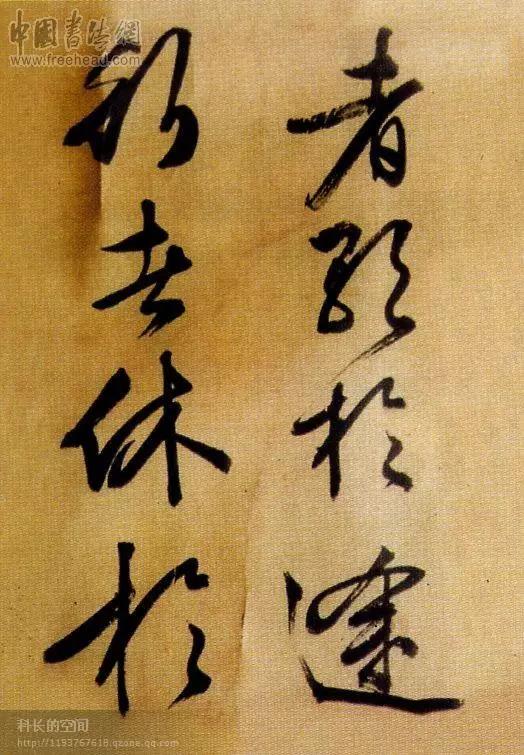 中國書法網
www.freehead.com
者歌於塗
行者休於
科长的空间
http://1193767618.qzone.qq.com